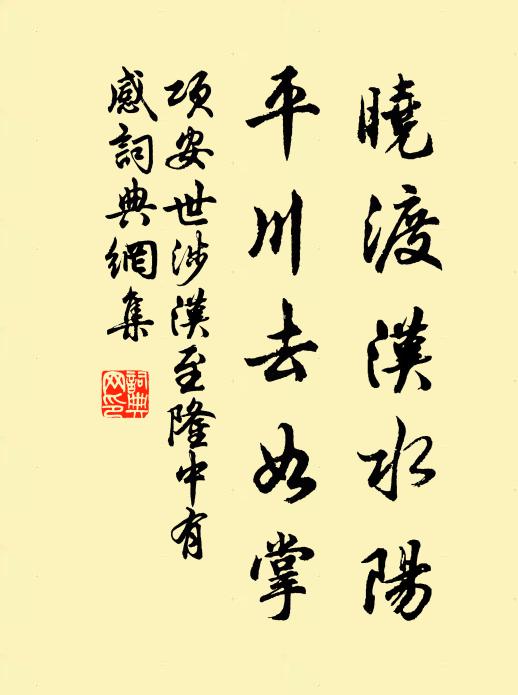 曉渡漢水陽
平川去如掌
項安世涉漢至隆中有
感詞典網集
詞典
网印